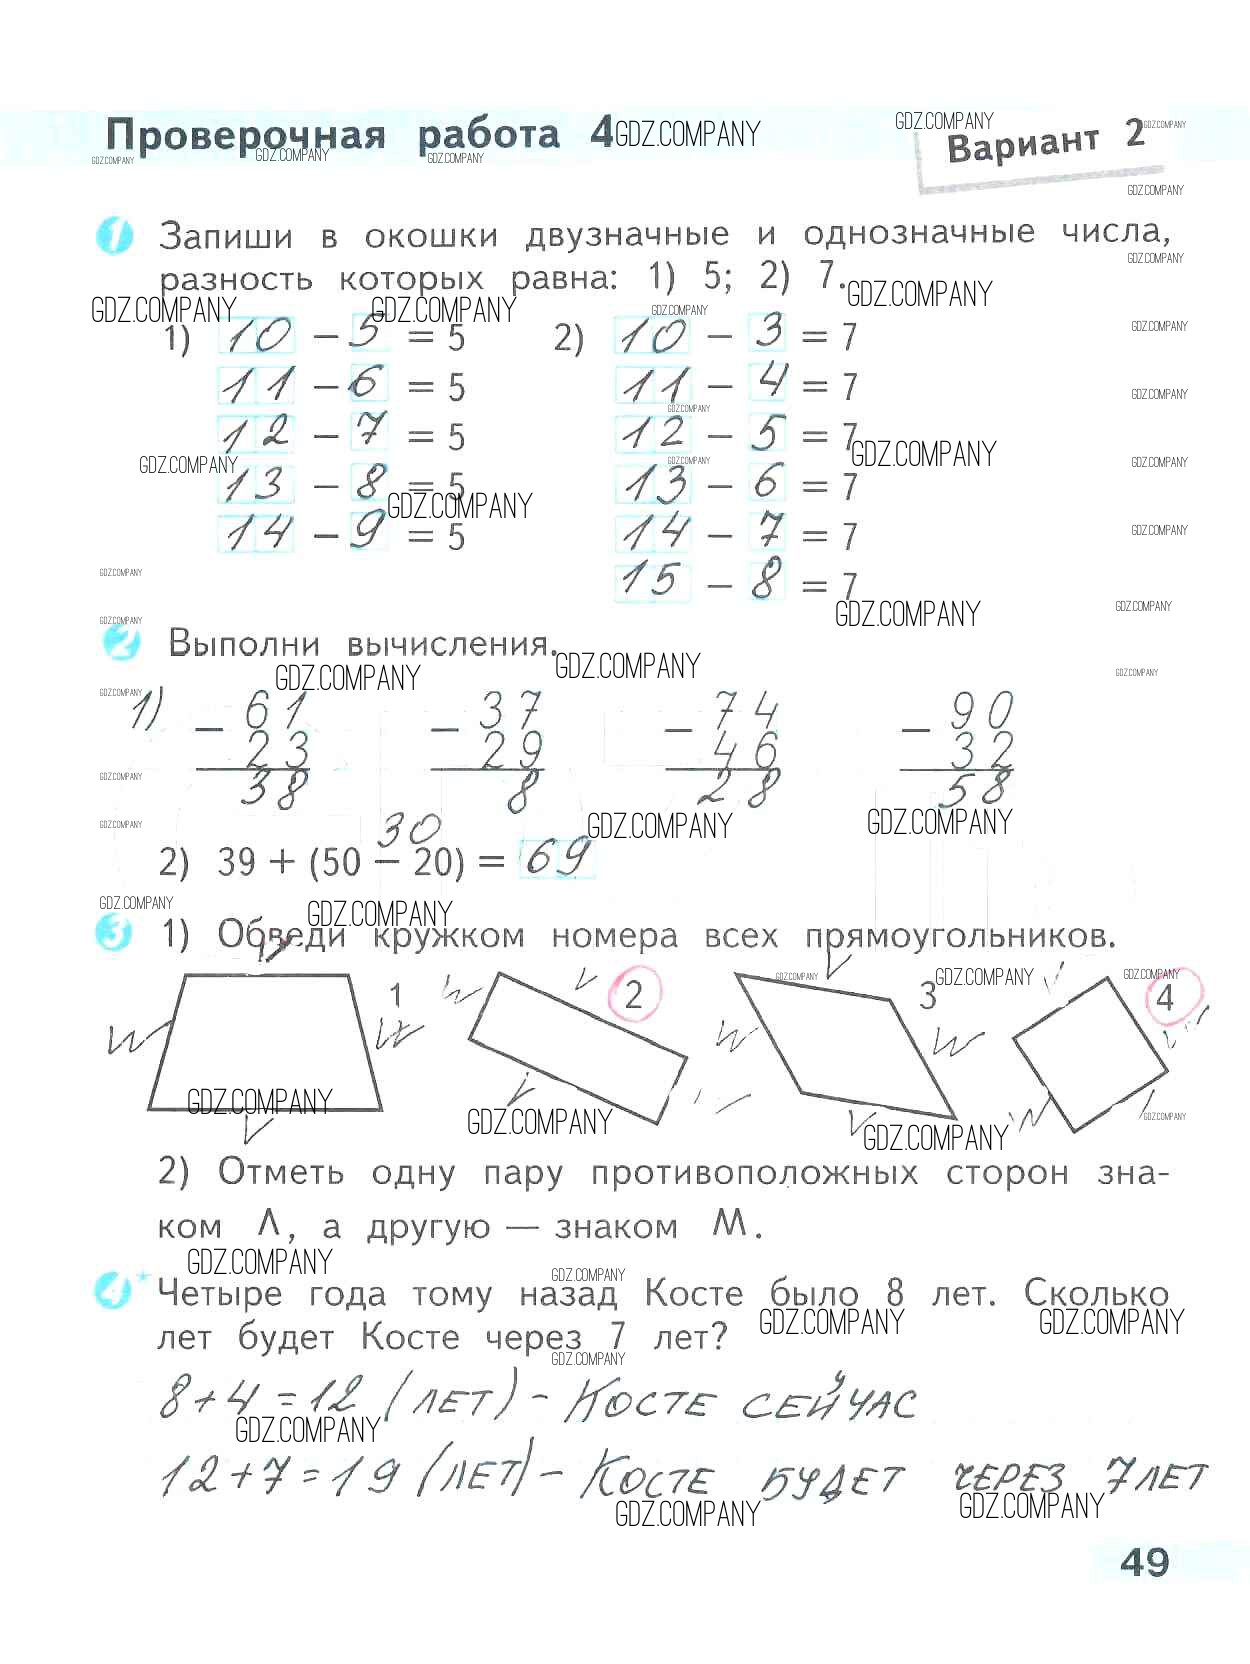 Проверочная работа 4
Вариант 2
1 Запиши в окошки двузначные и однозначные числа,
разность которых равна: 1) 5; 2) 7.
1) 10 - 5 = 5 2) 10 - 3 = 7
11 - 6 = 5 11 - 4 = 7
12 - 7 = 5 12 - 5 = 7
13 - 8 = 5 13 - 6 = 7
14 - 9 = 5 14 - 7 = 7
15 - 8 = 7
2 Выполни вычисления.
1) - 61 - 37 - 74 - 90
23 29 46 32
38 8 28 58
30
2) 39 + (50 - 20) = 69
3 1) Обведи кружком номера всех прямоугольников.
1 2 3 4
2) Отметь одну пару противоположных сторон зна-
ком Λ, а другую — знаком M.
4* Четыре года тому назад Косте было 8 лет. Сколько
лет будет Косте через 7 лет?
8+4=12 (ЛЕТ) - КОСТЕ СЕЙЧАС
12+7=19 (ЛЕТ) - КОСТЕ БУДЕТ ЧЕРЕЗ 7 ЛЕТ
49
GDZ.COMPANY